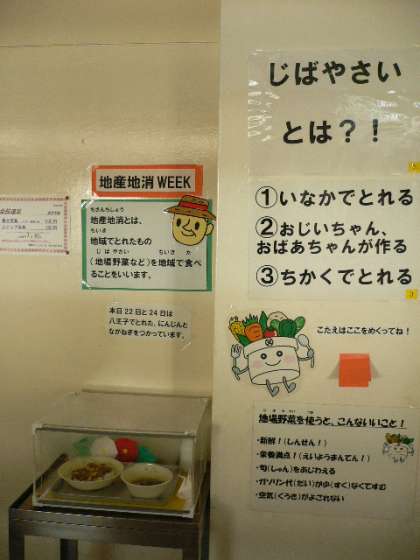 地産地消 WEEK
ちさんちしょう
地産地消とは、
ちいき
地域でとれたもの
じばやさい ちいき た
(地場野菜など)を地域で食べ
ることをいいます。
本日22日と24日は
八王子でとれた、にんじんと
ながねぎをつかっています。
じばやさい
とは?!
①いなかでとれる
②おじいちゃん、
おばあちゃんが作る
③ちかくでとれる
こたえはここをめくってね!
地場野菜を使うと、こんないいこと!
・新鮮!(しんせん!)
・栄養満点!(えいようまんてん!)
・旬(しゅん)をあじわえる
・ガソリン代(だい)が少(すく)なくてすむ
・空気(くうき)がよごれない